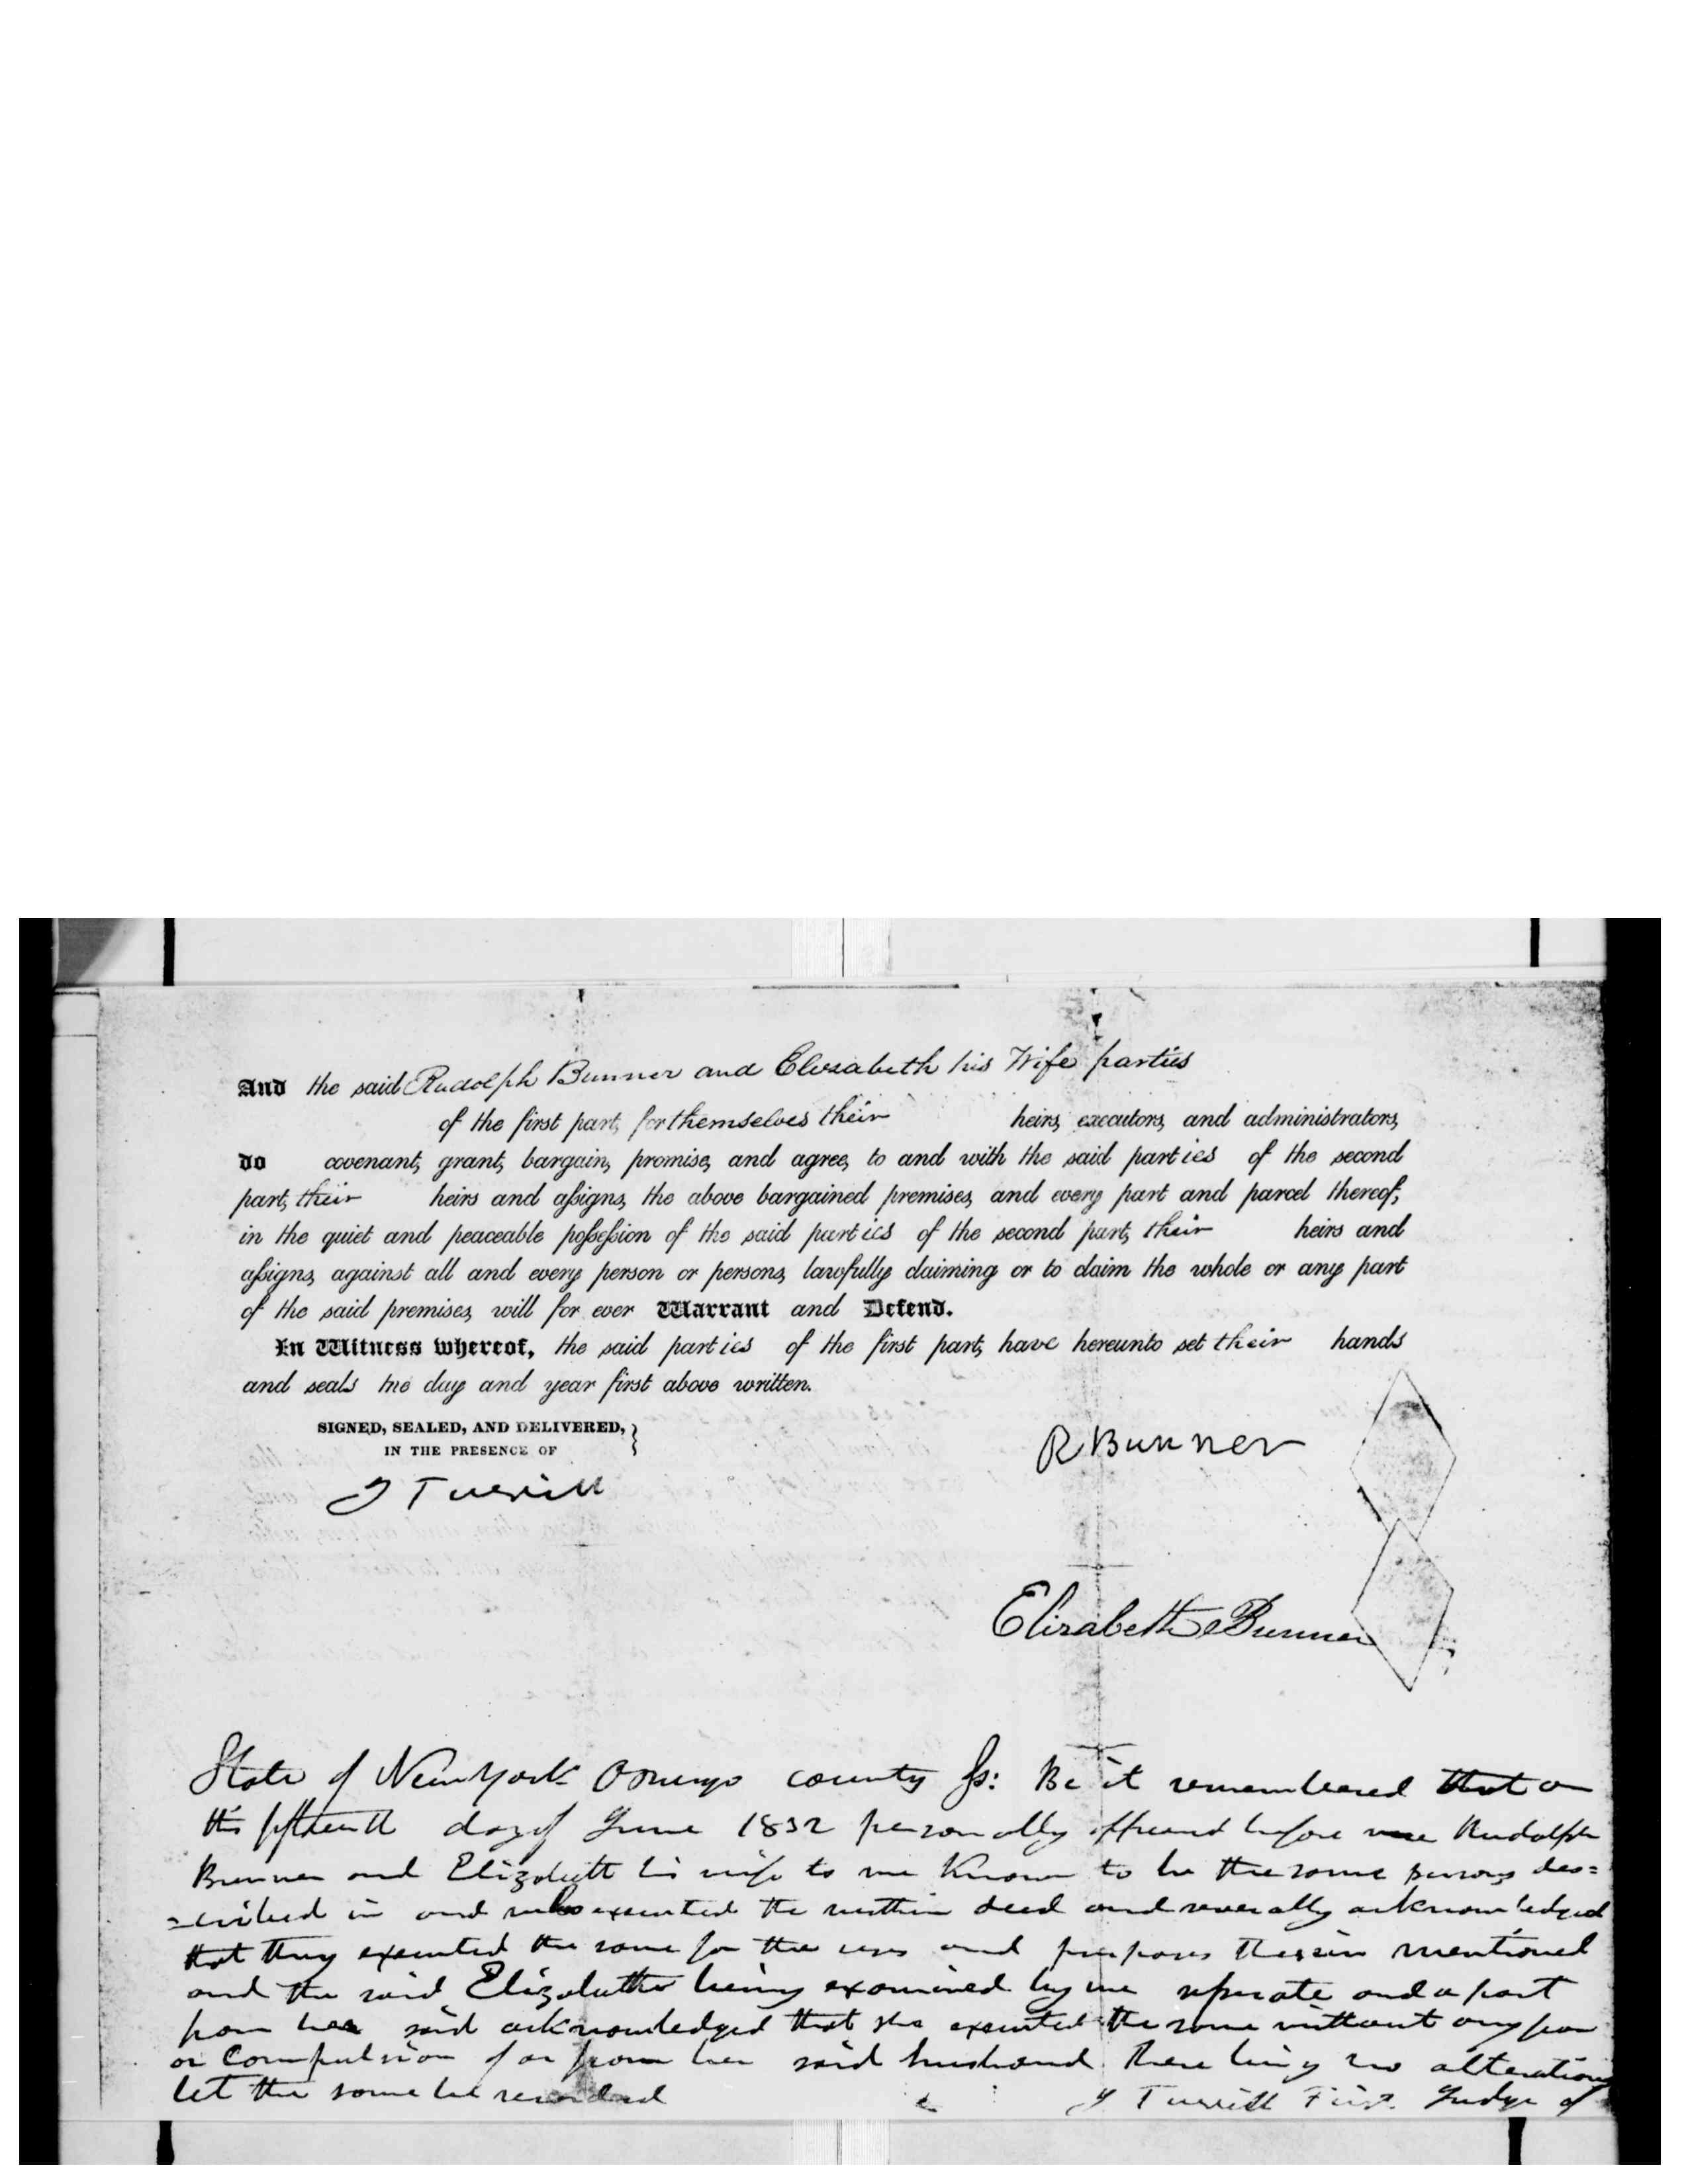 And the said Rudolph Bunner and Elizabeth his Wife parties
of the first part, for themselves their heirs, executors, and administrators,
do covenant, grant, bargain, promise, and agree, to and with the said parties of the second
part, their heirs and assigns, the above bargained premises, and every part and parcel thereof,
in the quiet and peaceable possession of the said parties of the second part, their heirs and
assigns, against all and every person or persons, lawfully claiming or to claim the whole or any part
of the said premises, will for ever Warrant and Defend.
In Witness whereof, the said parties of the first part, have hereunto set their hands
and seals the day and year first above written.
SIGNED, SEALED, AND DELIVERED,
IN THE PRESENCE OF
R Bunner
J Turrill
Elizabeth Bunner
State of New York Oswego county Ss: Be it remembered that on
the fifteenth day of June 1832 personally appeared before me Rudolph
Bunner and Elizabeth his wife to me Known to be the same persons des=
=cribed in and who executed the within deed and severally acknowledged
that they executed the same for the uses and purposes therein mentioned
and the said Elizabeth being examined by me seperate and apart
from her said acknowledged that she executed the same without any fear
or Compulsion of or from her said husband. there being no alterations
let the same be recorded J Turrill First Judge of